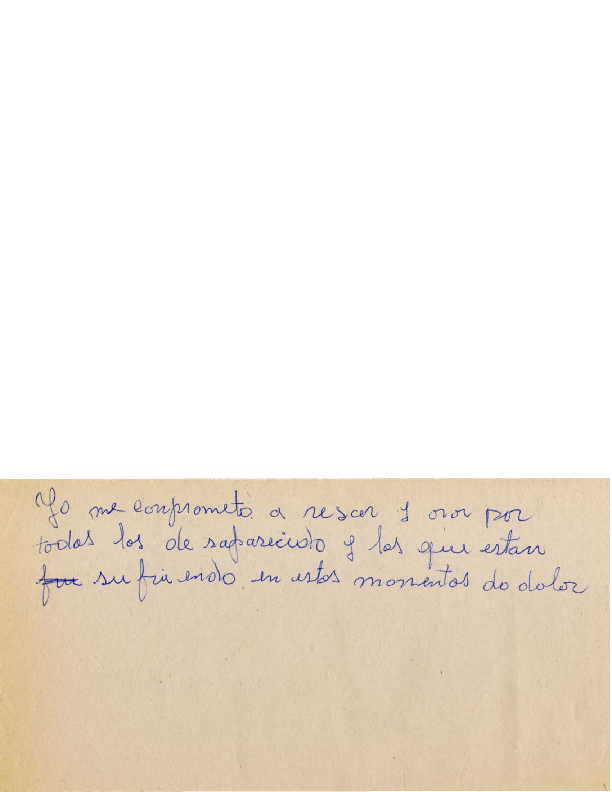 Yo me conprometo a resar y orar por
todos los de saparecido y los que estan
su friendo en estos momentos do dolor